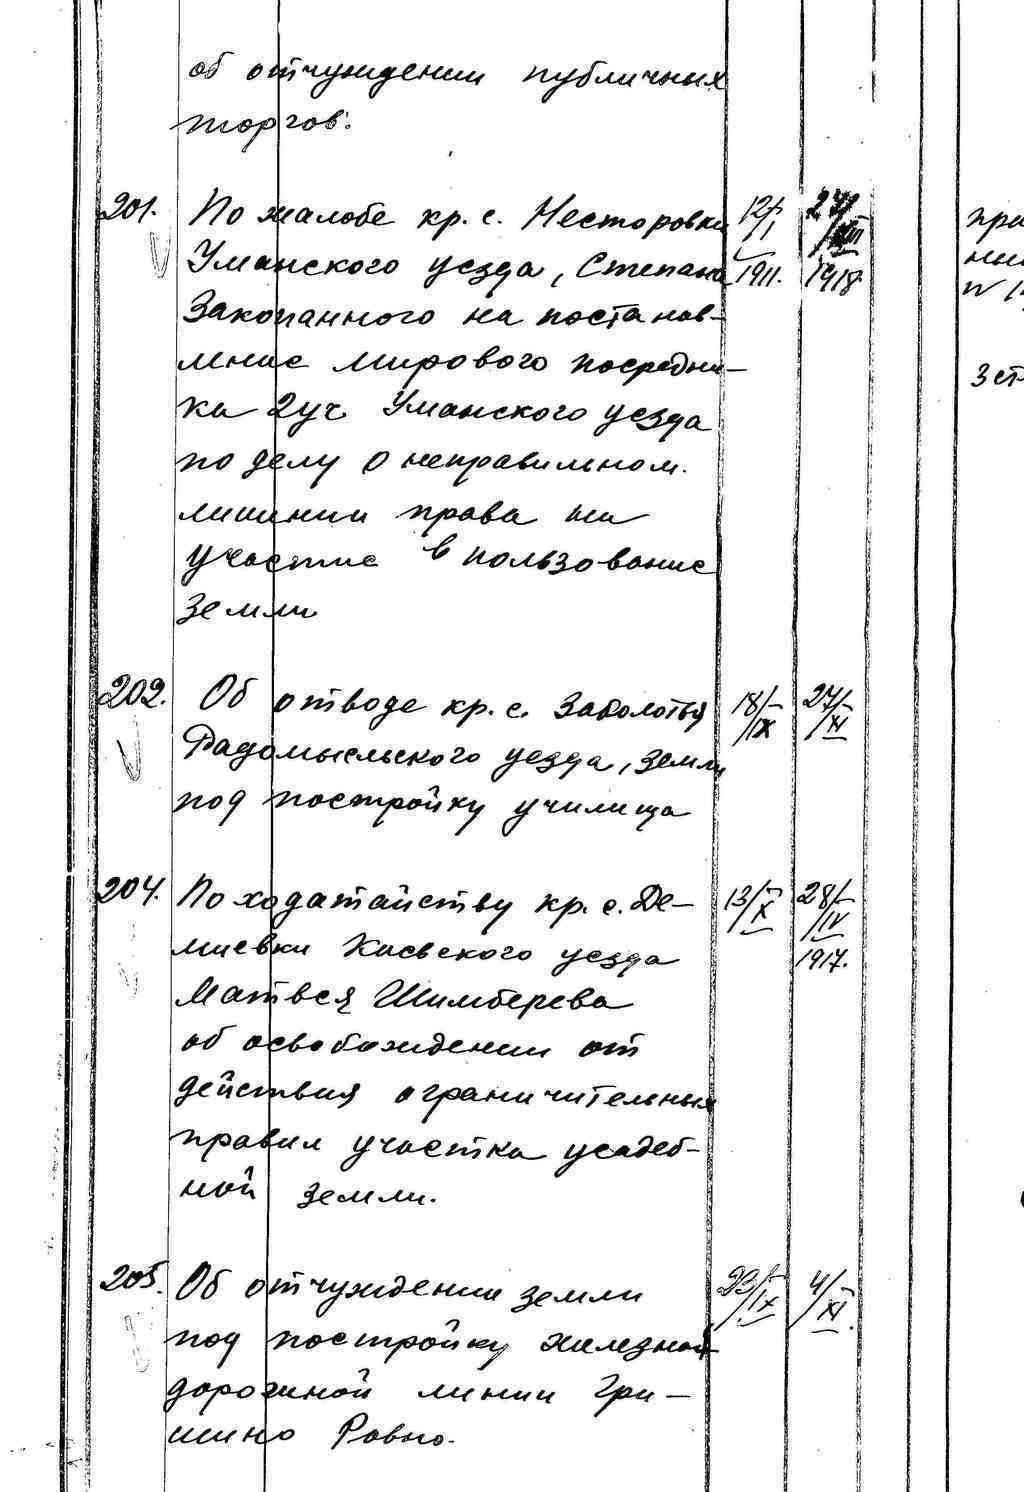 об отчуждении публичных
торгов.
201. По жалобе кр. с. Несторовки 12/I 27/XII при
Уманского уезда, Степана 1911. 1918
Закопанного на постанов-
ление мирового посредни- 3 ст
ка 2уч. Уманского уезда
по делу о неправильном.
лишении права на
участие в пользование
земли
202. Об отводе кр. с. Заболотья 18/IX 27/XI
Радомысльского уезда, земли
под постройку училища
204. По ходатайству кр. с. Де- 13/X 28/IV
миевки Киевского уезда 1917.
Матвея Шимберева
об освобождении от
действия ограничительных
правил участка усадеб-
ной земли.
205. Об отчуждении земли 23/IX 4/XI
под постройку железной
дорожной линии Гри-
шино Ровно.